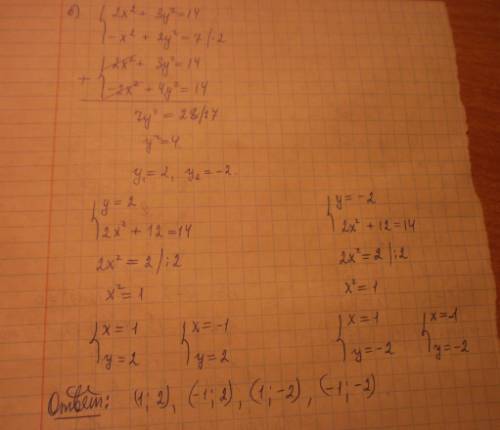 б) { 2x² + 3y² = 14
{ -x² + 2y² = 7 /·2
+ { 2x² + 3y² = 14
{ -2x² + 4y² = 14
7y² = 28 /:7
y² = 4
y₁ = 2, y₂ = -2.
{ y = 2
{ 2x² + 12 = 14
2x² = 2 /:2
x² = 1
{ x = 1
{ y = 2
{ x = -1
{ y = 2
{ y = -2
{ 2x² + 12 = 14
2x² = 2 /:2
x² = 1
{ x = 1
{ y = -2
{ x = -1
{ y = -2
Ответ: (1; 2), (-1; 2), (1; -2), (-1; -2)